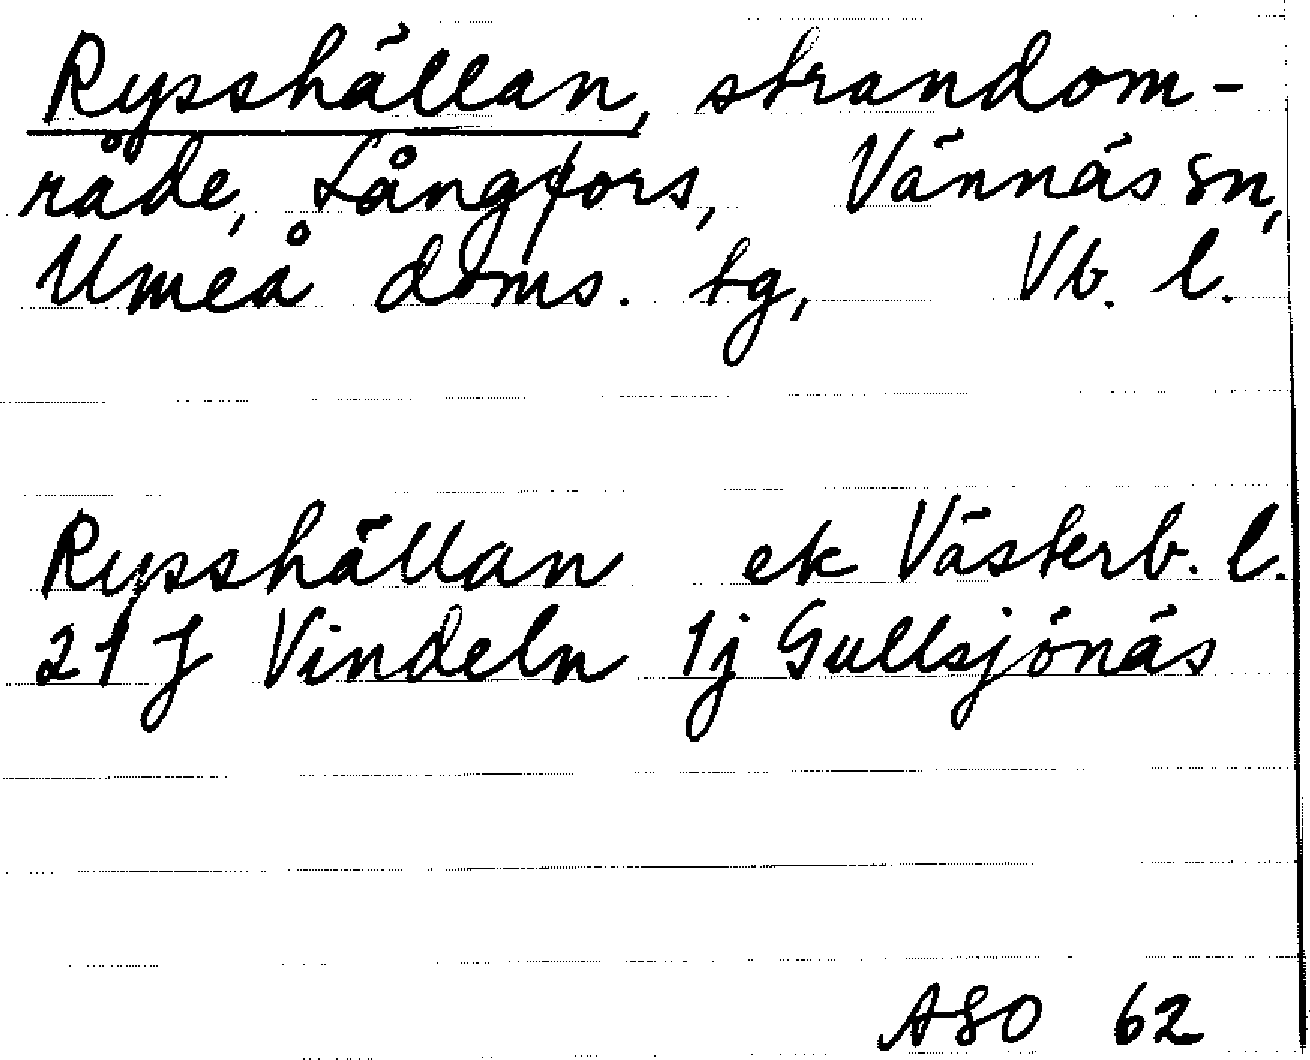 Rysshällan, strandom-
råde, Långfors, Vännäs sn,
Umeå doms. tg, Vb. l.
Rysshällan ek Västerb. l.
21 J Vindeln 1j Gullsjönäs
ASO 62